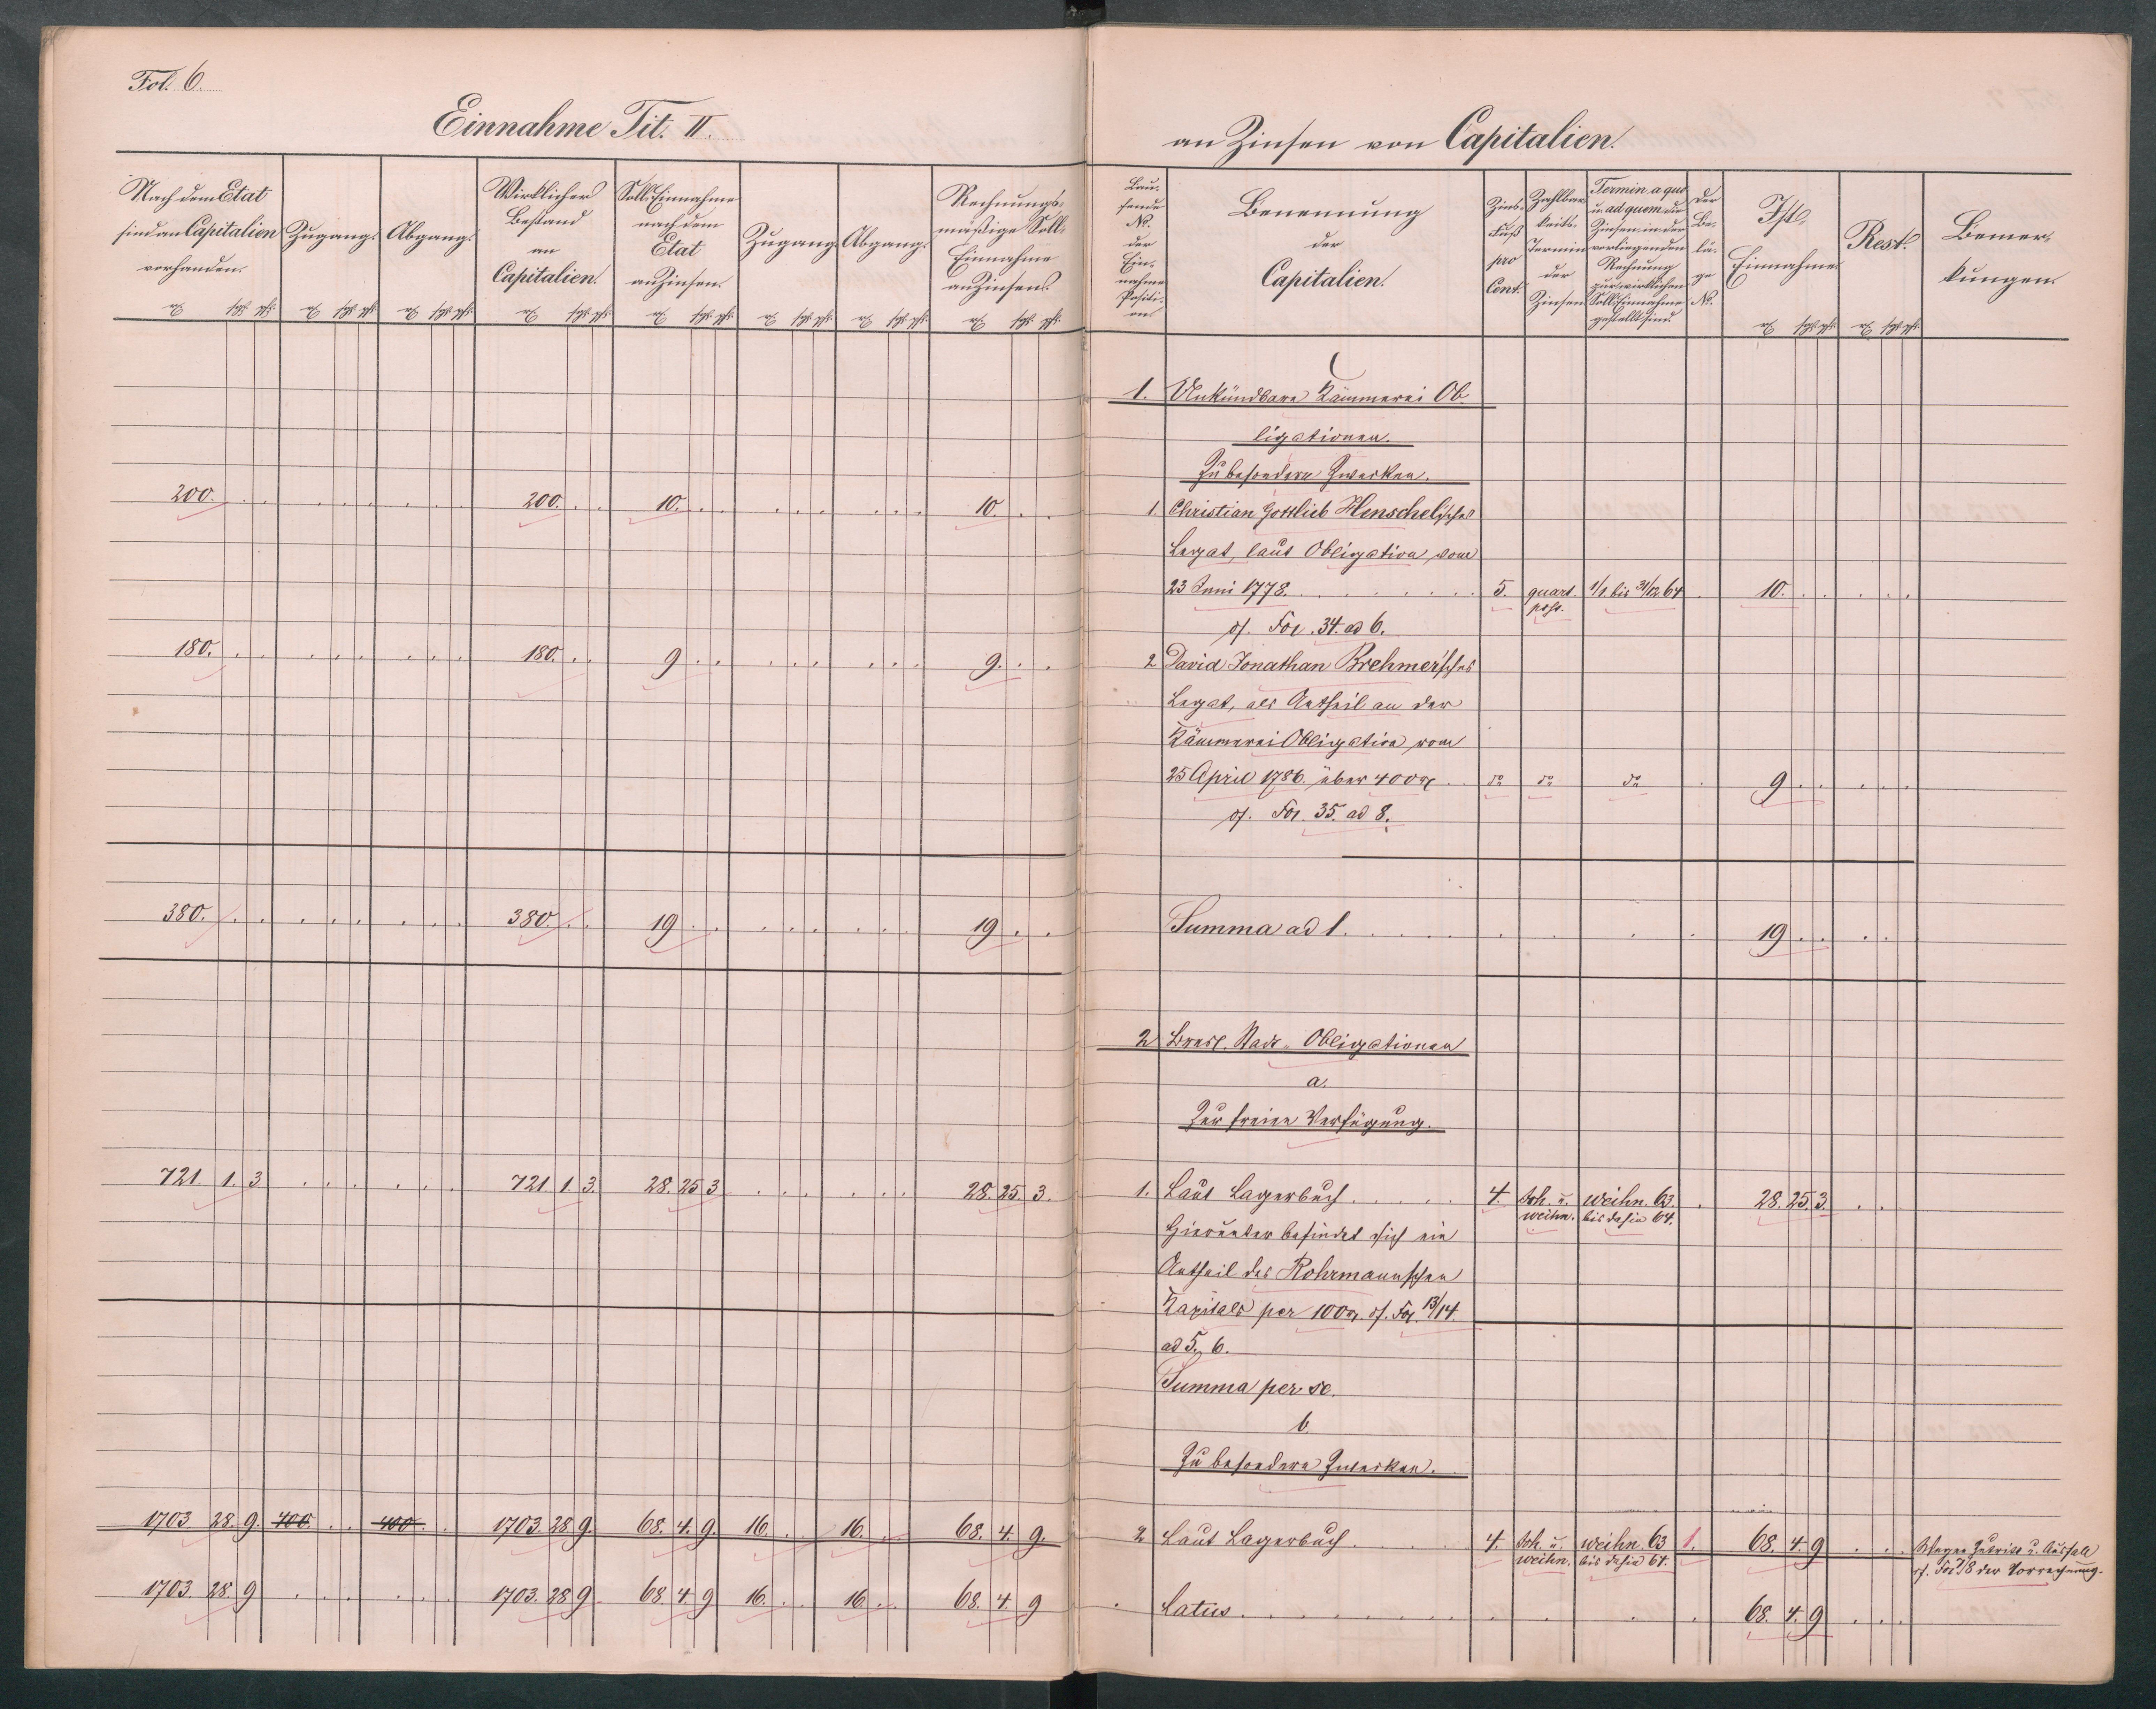 Fol. 6.
Einnahme Tit. II.
an Zinsen von Capitalien.
Nach dem Etat sind an Capitalien vorhanden.
Zugang.
Abgang.
Wirklicher Bestand an Capitalien.
Soll-Einnahme nach dem Etat an Zinsen.
Zugang.
Abgang.
Rechnungsmäßige Soll-Einnahme an Zinsen.
Laufende No. der Einnahme Position.
Benennung der Capitalien.
Zins-Fuß pro Cent.
Zahlbarkeits-Termin der Zinsen
Termin a quo u. ad quem die Zinsen in der vorliegenden Rechnung zur wirklichen Soll-Einnahme gestellt sind.
Der Beläge No.
Ist-Einnahme.
Rest.
Bemerkungen.
1. Unkündbare Kämmerei Ob-
ligationen.
Zu besondern Zwecken.
200. 200. 10. 10.
1. Christian Gottlieb Henschel'sches
Legat, laut Obligation vom
23 Juni 1778. 5. quart. 1/1. bis 31/12. 64 10.
cf. Fol. 34. ad 6.
180. 180. 9 9.
2 David Jonathan Brehmer'sches
Legat, als Antheil an der
Kämmerei Obligation vom
25 April 1786. über 400 do do do 9
cf. Fol. 35. ad 8.
380. 380. 19 19
Summa ad 1. 19
2 Bresl. Stadt-Obligationen
a.
Zur freien Verfügung.
721. 1. 3 721. 1. 3. 28. 25 3 28. 25. 3.
1. Laut Lagerbuch 4. Joh. u. weihn. 63. 28. 25. 3.
weihn. bis dahin 64.
Hierunter befindet sich ein
Antheil des Rohrmannschen
Kapitals per 100 cf. Fol. 13/14.
ad 5. 6.
Summa per se.
b.
Zu besondern Zwecken.
1703. 28. 9. 400. 400. 1703. 28. 9. 68. 4. 9. 16. 16. 68. 4. 9.
2 Laut Lagerbuch 4. Joh. u. weihn. 63 1. 68. 4. 9
weihn. bis dahin 64.
Wegen Zutritt u. Ausfall
cf. Fol. 7/8 der Vorrechnung.
1703. 28. 9 1703. 28 9. 68. 4. 9 16. 16. 68. 4. 9
Latus 68. 4. 9